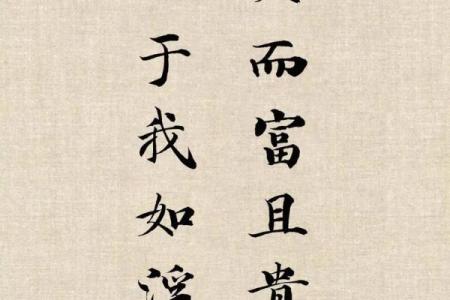 而富且貴
于我如浮